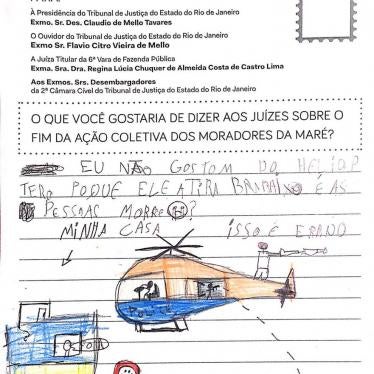 À Presidência do Tribunal de Justiça do Estado do Rio de Janeiro
Exmo. Sr. Des. Claudio de Mello Tavares
O Ouvidor do Tribunal de Justiça do Estado do Rio de Janeiro
Exmo Sr. Flavio Citro Vieira de Mello
A Juíza Titular da 6ª Vara de Fazenda Pública
Exma. Sra. Dra. Regina Lúcia Chuquer de Almeida Costa de Castro Lima
Aos Exmos. Srs. Desembargadores
da 2ª Câmara Cível do Tribunal de Justiça do Estado do Rio de Janeiro
O QUE VOCÊ GOSTARIA DE DIZER AOS JUÍZES SOBRE O
FIM DA AÇÃO COLETIVA DOS MORADORES DA MARÉ?
EU NÃO GOSTOM DO HELIOP
TERO POQUE ELE ATIRA E AS
PESSOAS MORRE
MINHA CASA ISSO É ERADO